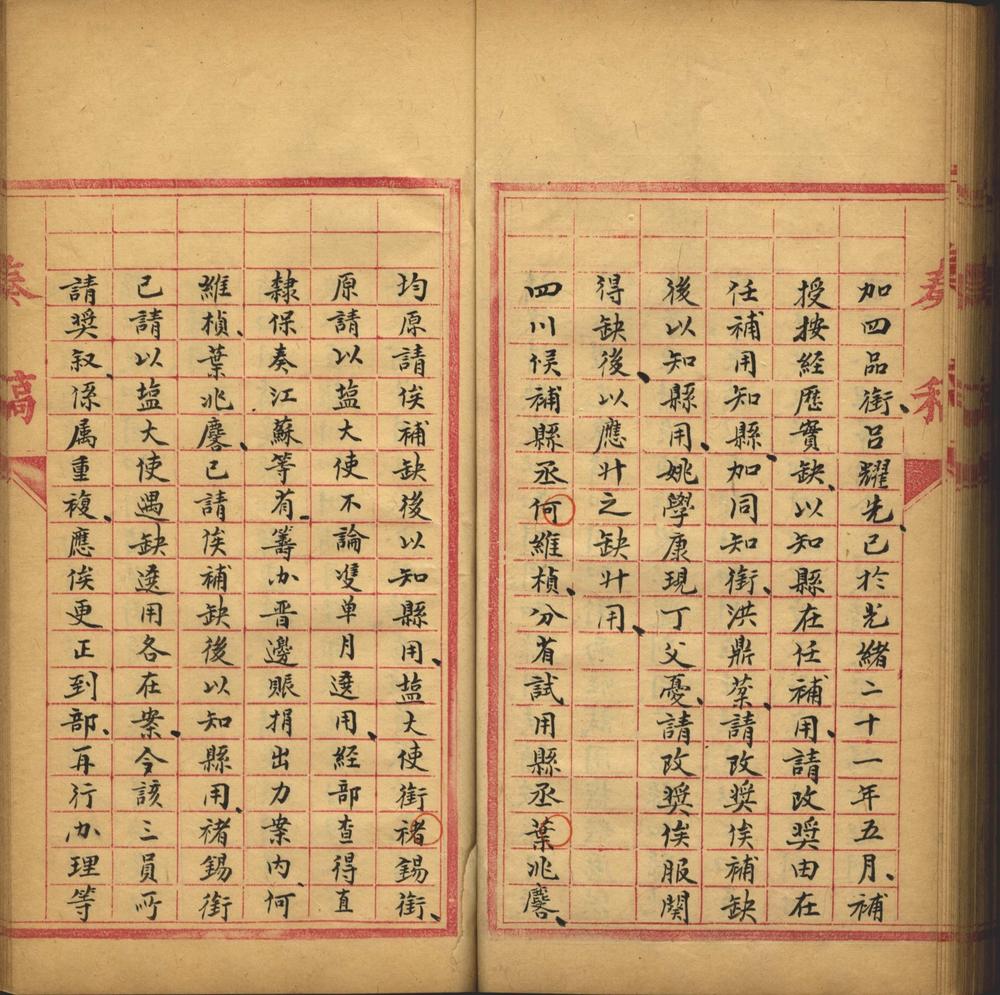 奏稿
加四品銜、呂耀先、已於光緒二十一年五月、補
授按經歷實缺、以知縣在任補用、請改奬由在
任補用知縣、加同知銜、洪鼎棻、請改奬俟補缺
後以知縣用、姚學康現丁父憂、請改奬俟服闋
得缺後、以應升之缺升用、
四川候補縣丞何維楨、分省試用縣丞葉兆麐、
均原請俟補缺後以知縣用、塩大使銜禇錫銜、
原請以塩大使不論雙单月選用、經部查得直
隸保奏江蘇等省籌办晋邊賑捐出力案內、何
維楨、葉兆麐、已請俟補缺後以知縣用、禇錫銜
已請以塩大使遇缺選用各在案、今該三員所
請奬叙、係属重複、應俟更正到部、再行办理等
奏稿